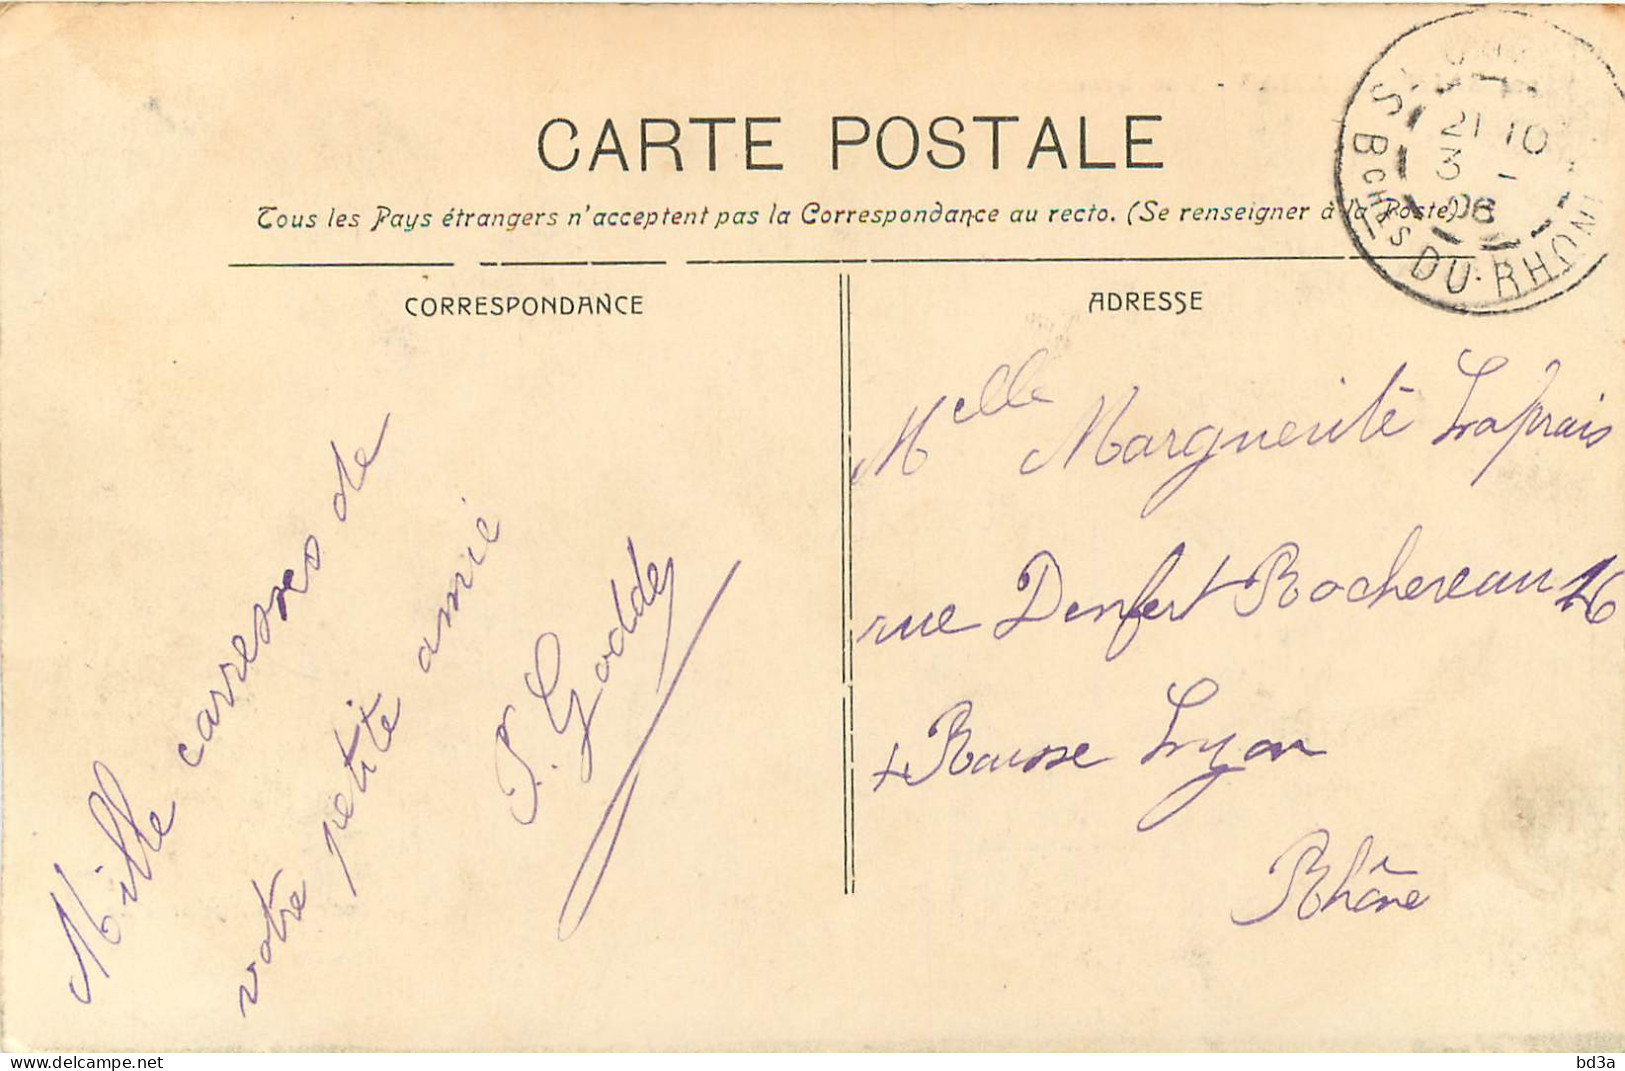 CARTE POSTALE
Tous les Pays étrangers n'acceptent pas la Correspondance au recto. (Se renseigner à la Poste)
CORRESPONDANCE
ADRESSE
21 10
3 -
06
BCHES DU-RHONE
Mille carresses de
votre petite amie
Godde
Melle Marguerite Laprais
rue Denfert Rochereau 26
+ Rousse Lyon
Rhône
delcampe.net
bd3a